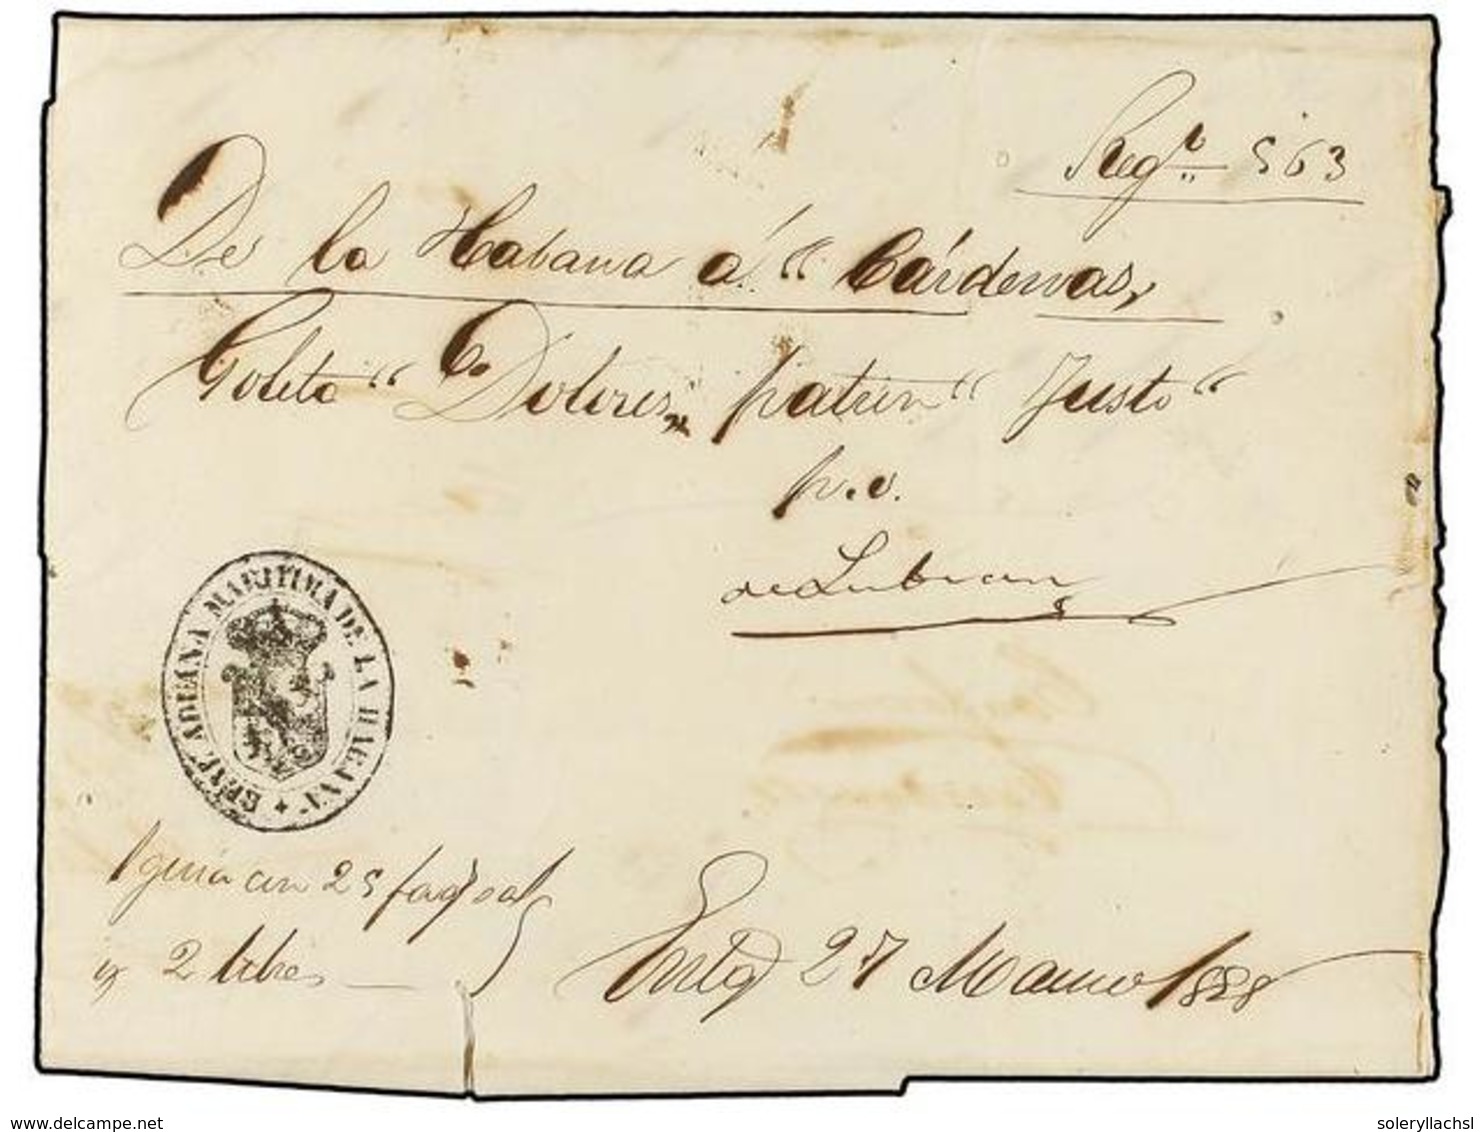 Regº 563
De la Habana á “ Cárdenas,
Goleta “ Dolores„ patrón “ Justo “
p.o.
de
ADUANA MARITIMA DE LA HABANA
1 guia con 25
y 2 libres
Entd 27 Marzo 1858
delcampe.net
soleryllachsl